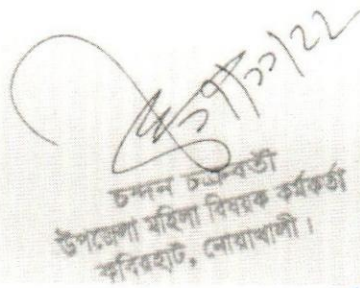 ২৭/১১/২২
চন্দন চক্রবর্তী
উপজেলা মহিলা বিষয়ক কর্মকর্তা
কবিরহাট, নোয়াখালী।